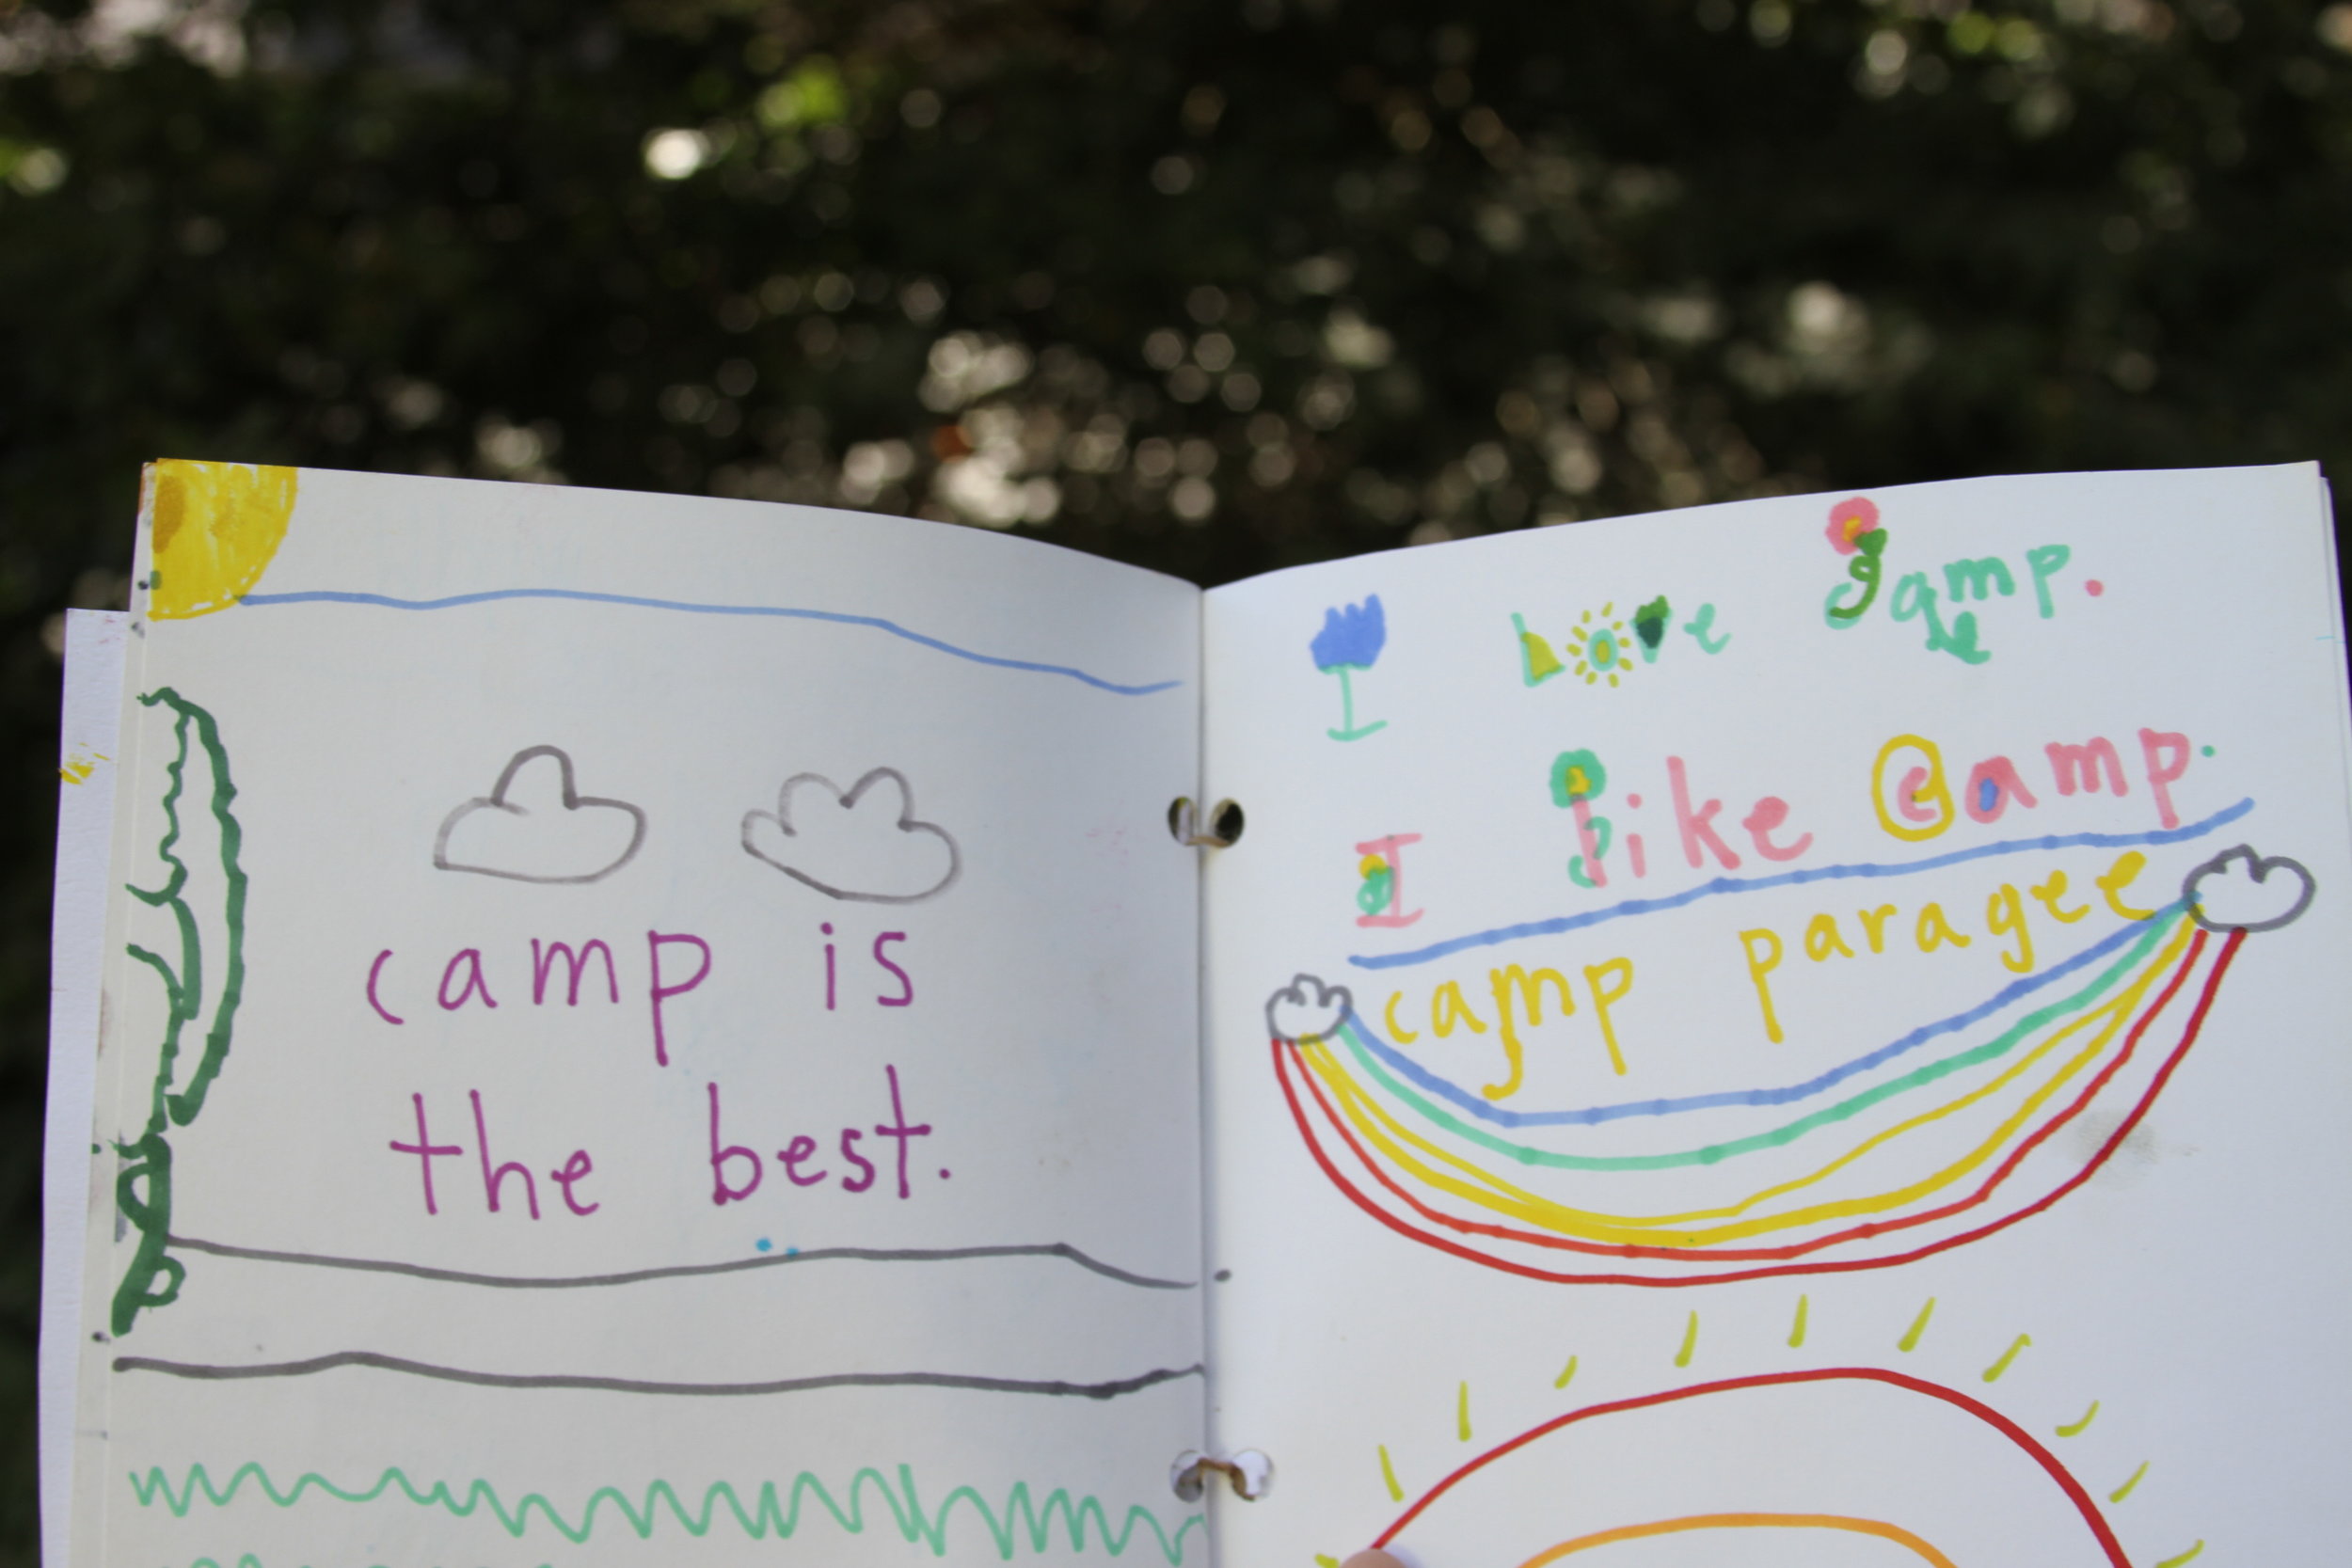 camp is
the best.
I Love Camp.
I like Camp.
camp paragee